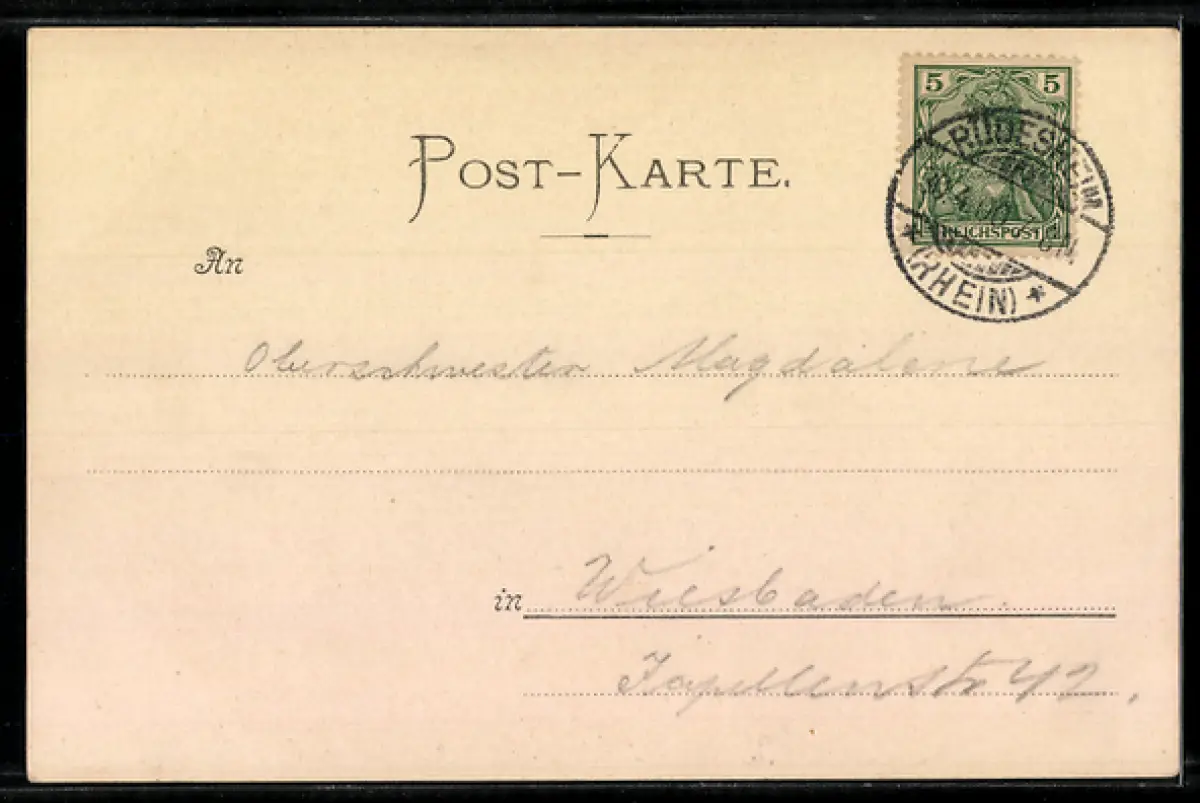 5 5
POST-KARTE.
RÜDESHEIM
4.00
REICHSPOST
* (RHEIN) *
An
Oberschwester Magdalene
in Wiesbaden.
Kapellenstr 42.